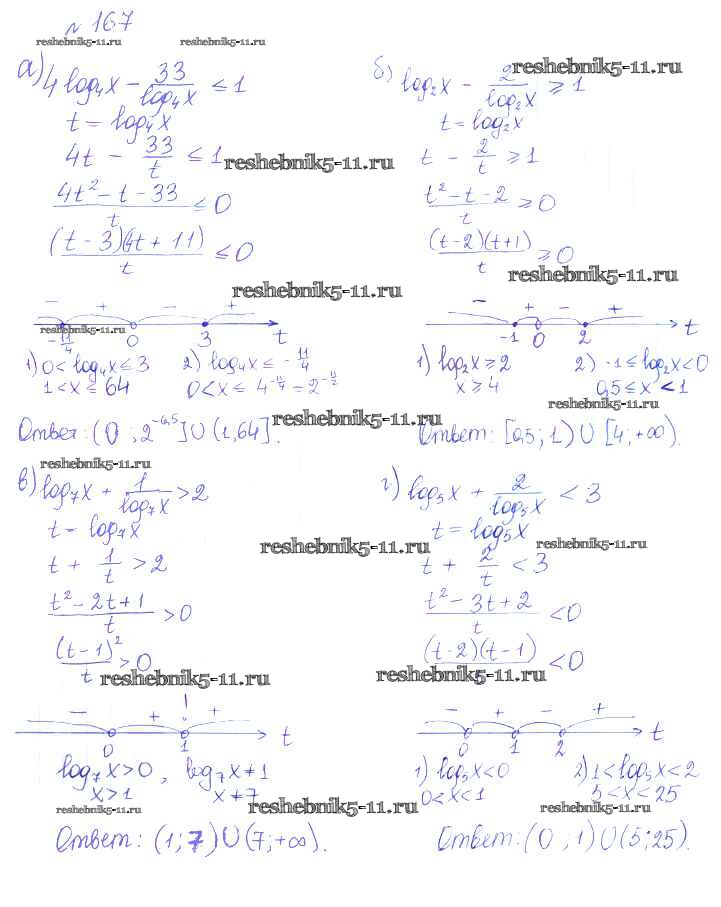 № 167
reshebnik5-11.ru reshebnik5-11.ru
а) 4 log₄x − 33/log₄x ≤ 1
t = log₄x
4t − 33/t ≤ 1
reshebnik5-11.ru
(4t² − t − 33)/t ≤ 0
(t − 3)(4t + 11)/t ≤ 0
reshebnik5-11.ru
− + − +
reshebnik5-11.ru
−11/4 0 3 t
1) 0 < log₄x ≤ 3 2) log₄x ≤ −11/4
1 < x ≤ 64 0 < x ≤ 4^(−11/4) = 2^(−11/2)
reshebnik5-11.ru
Ответ: (0 ; 2^(−5,5)] ∪ (1, 64].
б) log₂x − 2/log₂x ≥ 1
reshebnik5-11.ru
t = log₂x
t − 2/t ≥ 1
(t² − t − 2)/t ≥ 0
(t−2)(t+1)/t ≥ 0
reshebnik5-11.ru
− + − +
−1 0 2 t
1) log₂x ≥ 2 2) −1 ≤ log₂x < 0
x ≥ 4 0,5 ≤ x < 1
reshebnik5-11.ru
Ответ: [0,5; 1) ∪ [4; +∞).
reshebnik5-11.ru
в) log₇x + 1/log₇x > 2
t − log₇x
reshebnik5-11.ru
t + 1/t > 2
(t² − 2t + 1)/t > 0
(t − 1)²/t > 0
reshebnik5-11.ru
− + +
0 1 t
log₇x > 0 , log₇x ≠ 1
x > 1 x ≠ 7
reshebnik5-11.ru reshebnik5-11.ru
Ответ: (1; 7) ∪ (7; +∞).
г) log₅x + 2/log₅x < 3
t = log₅x
reshebnik5-11.ru
t + 2/t < 3
(t² − 3t + 2)/t < 0
(t−2)(t−1)/t < 0
reshebnik5-11.ru
− + − +
0 1 2 t
1) log₅x < 0 2) 1 < log₅x < 2
0 < x < 1 5 < x < 25
reshebnik5-11.ru
Ответ: (0 ; 1) ∪ (5; 25).